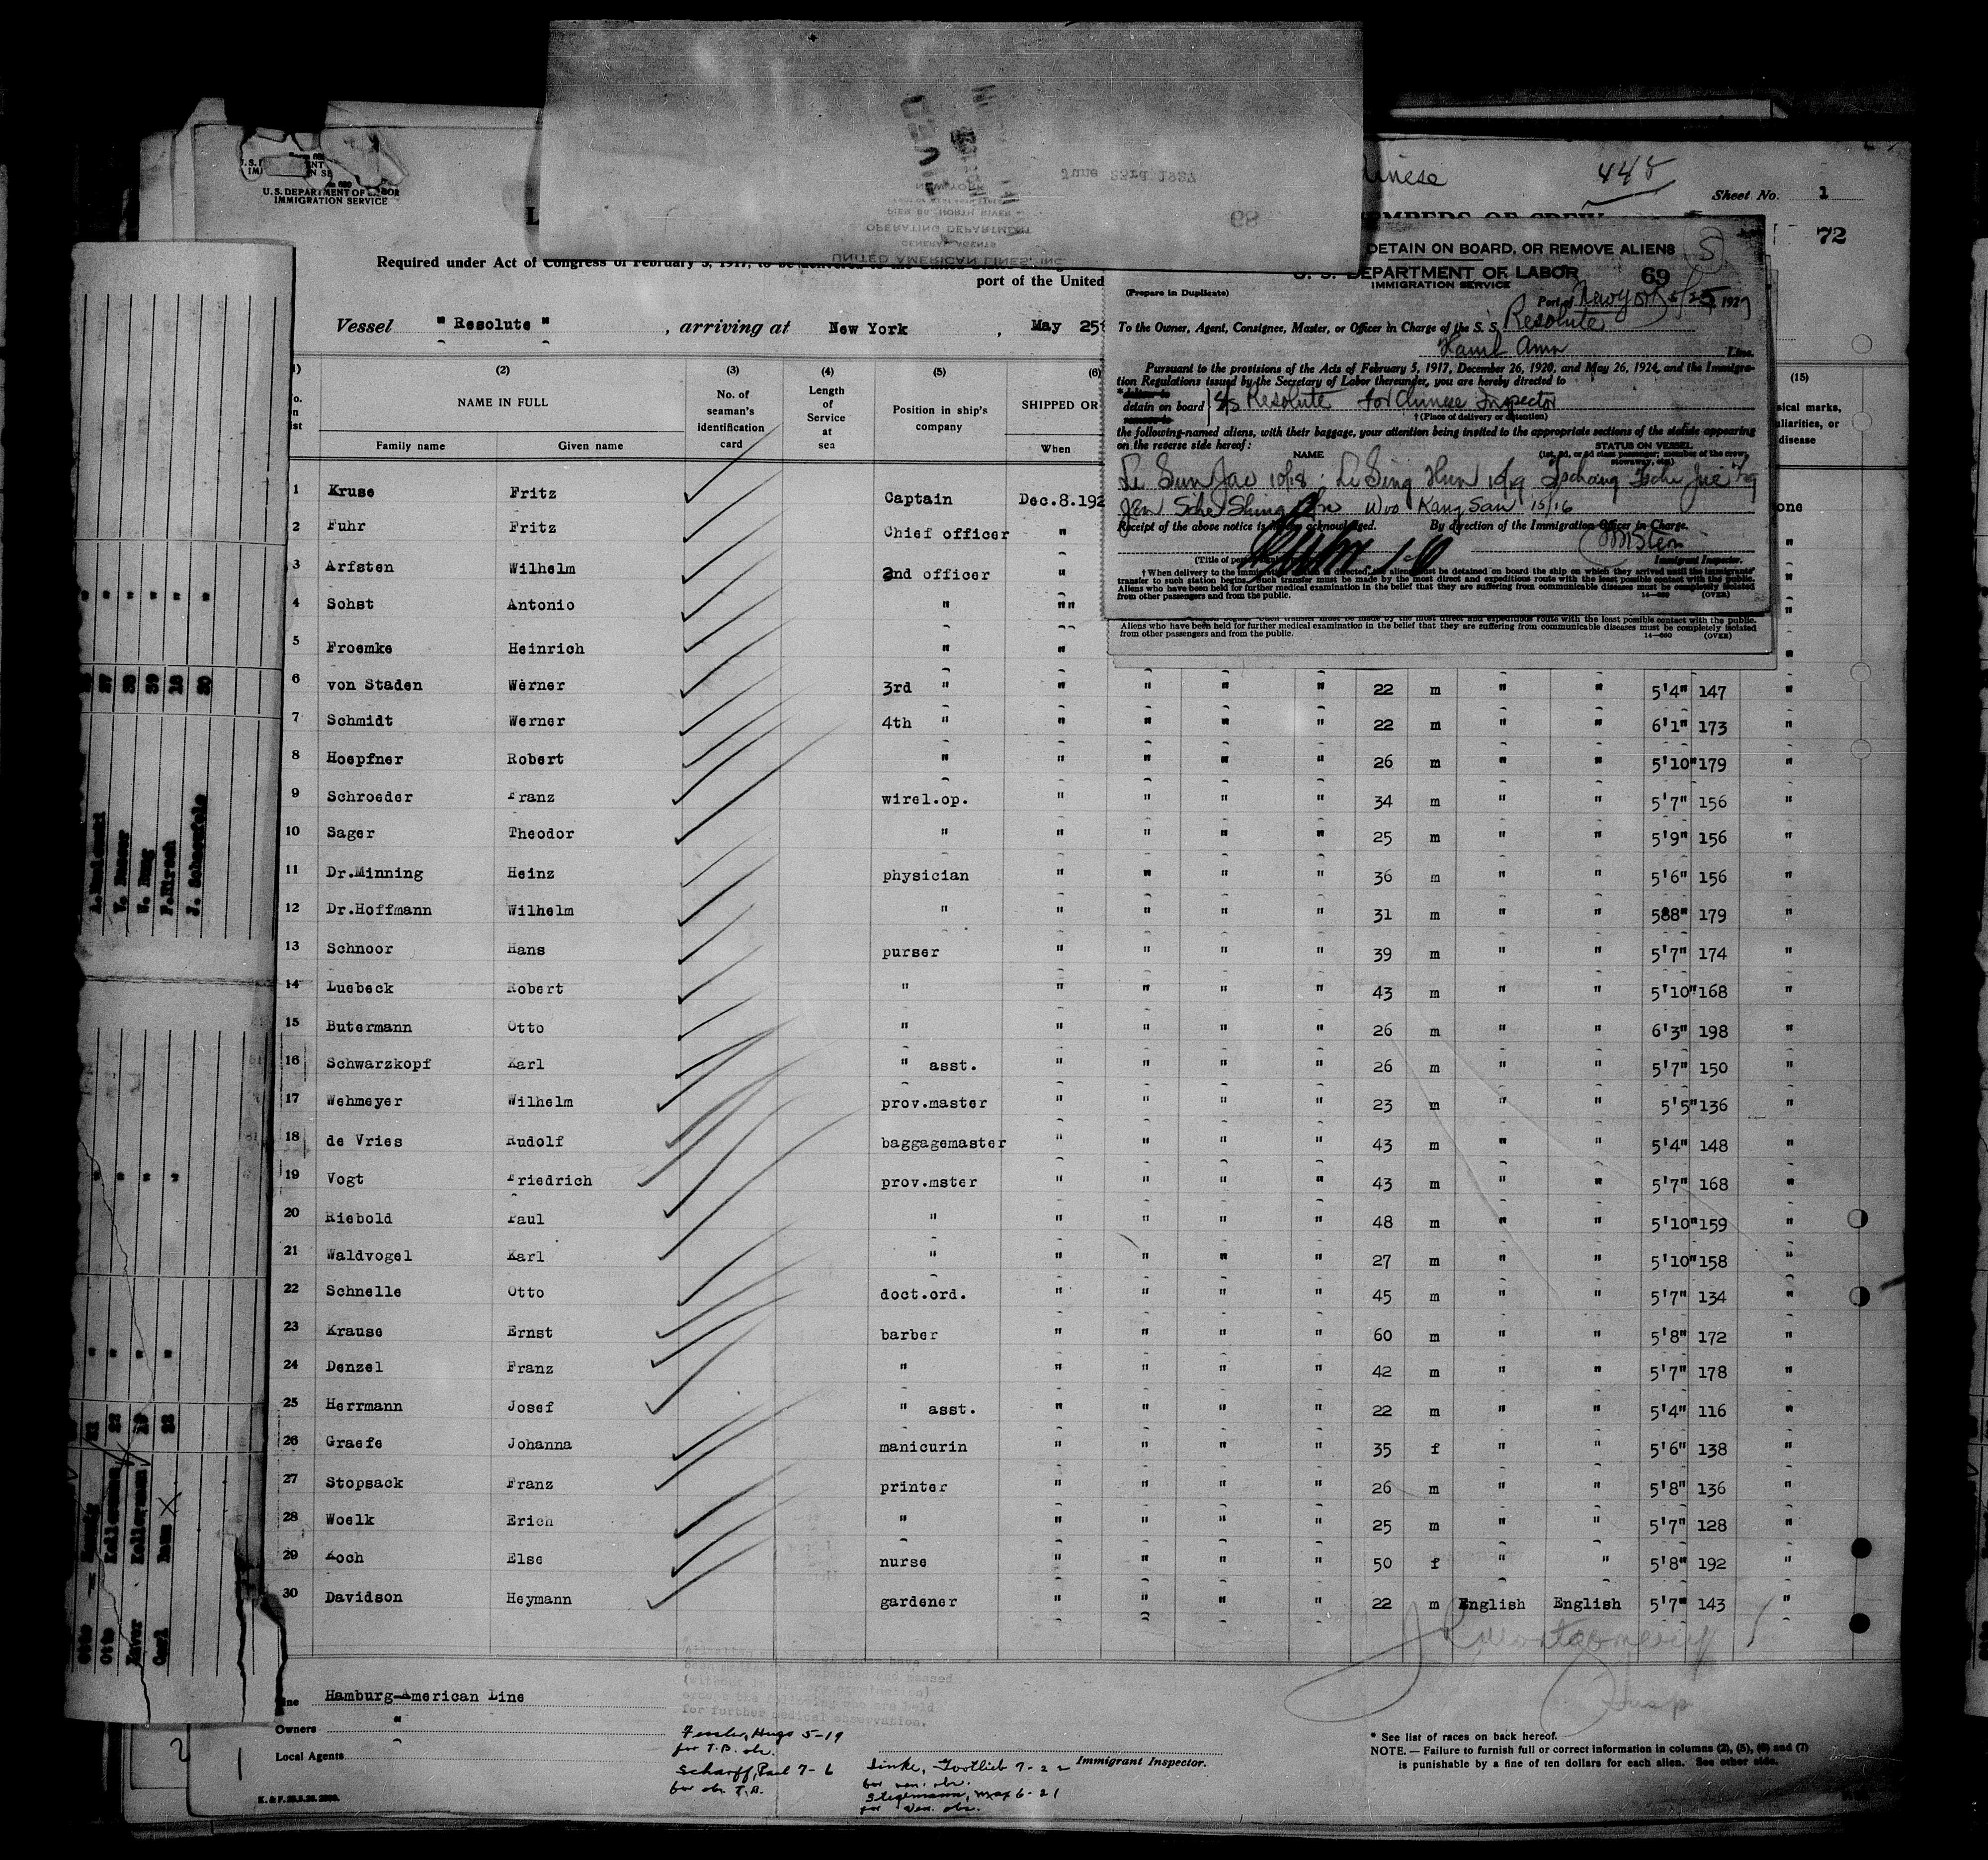 U.S. DEPARTMENT OF LABOR
IMMIGRATION SERVICE
June 23rd 1927
68
NEW YORK
PIER 86, NORTH RIVER
OPERATING DEPARTMENT
GENERAL AGENTS
UNITED AMERICAN LINES, INC.
448
Sheet No. 1
72
Required under Act of Congress of February 5, 1917, to be delivered to the United
port of the United
Vessel " Resolute " , arriving at New York , May 25
DETAIN ON BOARD, OR REMOVE ALIENS
S
U. S. DEPARTMENT OF LABOR 69
IMMIGRATION SERVICE
(Prepare in Duplicate)
Port of New York 5/25, 1927
To the Owner, Agent, Consignee, Master, or Officer in Charge of the S. S. Resolute
Hamb Amn Line.
Pursuant to the provisions of the Acts of February 5, 1917, December 26, 1920, and May 26, 1924, and the Immigra-
tion Regulations issued by the Secretary of Labor thereunder, you are hereby directed to
*deliver to
detain on board } S/S Resolute for Chinese Inspector
remove to
†(Place of delivery or detention)
the following-named aliens, with their baggage, your attention being invited to the appropriate sections of the statute appearing
on the reverse side hereof:
NAME
STATUS ON VESSEL
(1st, 2d, or 3d class passenger; member of the crew; stowaway, etc.)
Li Sun Jac 10/18 : Li Sing Hun 10/19 Tschang Tschi Jue
Woo Kang San 15/16
Receipt of the above notice is hereby acknowledged. By direction of the Immigration Officer in Charge.
Immigrant Inspector.
† When delivery to the immigrant station is directed, the aliens must be detained on board the ship on which they arrived until the immigrants'
transfer to such station begins. Such transfer must be made by the most direct and expeditious route with the least possible contact with the public.
Aliens who have been held for further medical examination in the belief that they are suffering from communicable diseases must be completely isolated
from other passengers and from the public. 14—680 (OVER)
Aliens who have been held for further medical examination in the belief that they are suffering from communicable diseases must be completely isolated
from other passengers and from the public. 14—680 (OVER)
(2) (3) (4) (5) (6) (15)
NAME IN FULL No. of seaman's identification card Length of Service at sea Position in ship's company SHIPPED OR
Family name Given name When
1 Kruse Fritz Captain Dec.8.192
2 Fuhr Fritz Chief officer "
3 Arfsten Wilhelm 2nd officer "
4 Sohst Antonio " ""
5 Froemke Heinrich " "
6 von Staden Werner 3rd " " " " " 22 m " " 5'4" 147 "
7 Schmidt Werner 4th " " " " " 22 m " " 6'1" 173 "
8 Hoepfner Robert " " " " " 26 m " " 5'10" 179 "
9 Schroeder Franz wirel.op. " " " " 34 m " " 5'7" 156 "
10 Sager Theodor " " " " " 25 m " " 5'9" 156 "
11 Dr.Minning Heinz physician " " " " 36 m " " 5'6" 156 "
12 Dr.Hoffmann Wilhelm " " " " " 31 m " " 588" 179 "
13 Schnoor Hans purser " " " " 39 m " " 5'7" 174 "
14 Luebeck Robert " " " " " 43 m " " 5'10" 168 "
15 Butermann Otto " " " " " 26 m " " 6'3" 198 "
16 Schwarzkopf Karl " asst. " " " " 26 m " " 5'7" 150 "
17 Wehmeyer Wilhelm prov.master " " " " 23 m " " 5'5" 136 "
18 de Vries Rudolf baggagemaster " " " " 43 m " " 5'4" 148 "
19 Vogt Friedrich prov.mster " " " " 43 m " " 5'7" 168 "
20 Riebold Paul " " " " " 48 m " " 5'10" 159 "
21 Waldvogel Karl " " " " " 27 m " " 5'10" 158 "
22 Schnelle Otto doct.ord. " " " " 45 m " " 5'7" 134 "
23 Krause Ernst barber " " " " 60 m " " 5'8" 172 "
24 Denzel Franz " " " " " 42 m " " 5'7" 178 "
25 Herrmann Josef " asst. " " " " 22 m " " 5'4" 116 "
26 Graefe Johanna manicurin " " " " 35 f " " 5'6" 138 "
27 Stopsack Franz printer " " " " 26 m " " 5'8" 136 "
28 Woelk Erich " " " " " 25 m " " 5'7" 128 "
29 Koch Else nurse " " " " 50 f " " 5'8" 192 "
30 Davidson Heymann gardener " " " " 22 m English English 5'7" 143 "
Line Hamburg-American Line
Owners "
Local Agents
for further medical observation.
Fessler, Hugo 5-19
for T.B. obs.
Scharff, Paul 7-6
for obs T.B.
Linke, Gottlieb 7-22
for ven. obs.
Stegemann, Max 6-21
for Ven. obs.
Immigrant Inspector.
* See list of races on back hereof.
NOTE.—Failure to furnish full or correct information in columns (2), (5), (6) and (7)
is punishable by a fine of ten dollars for each alien. See other side.